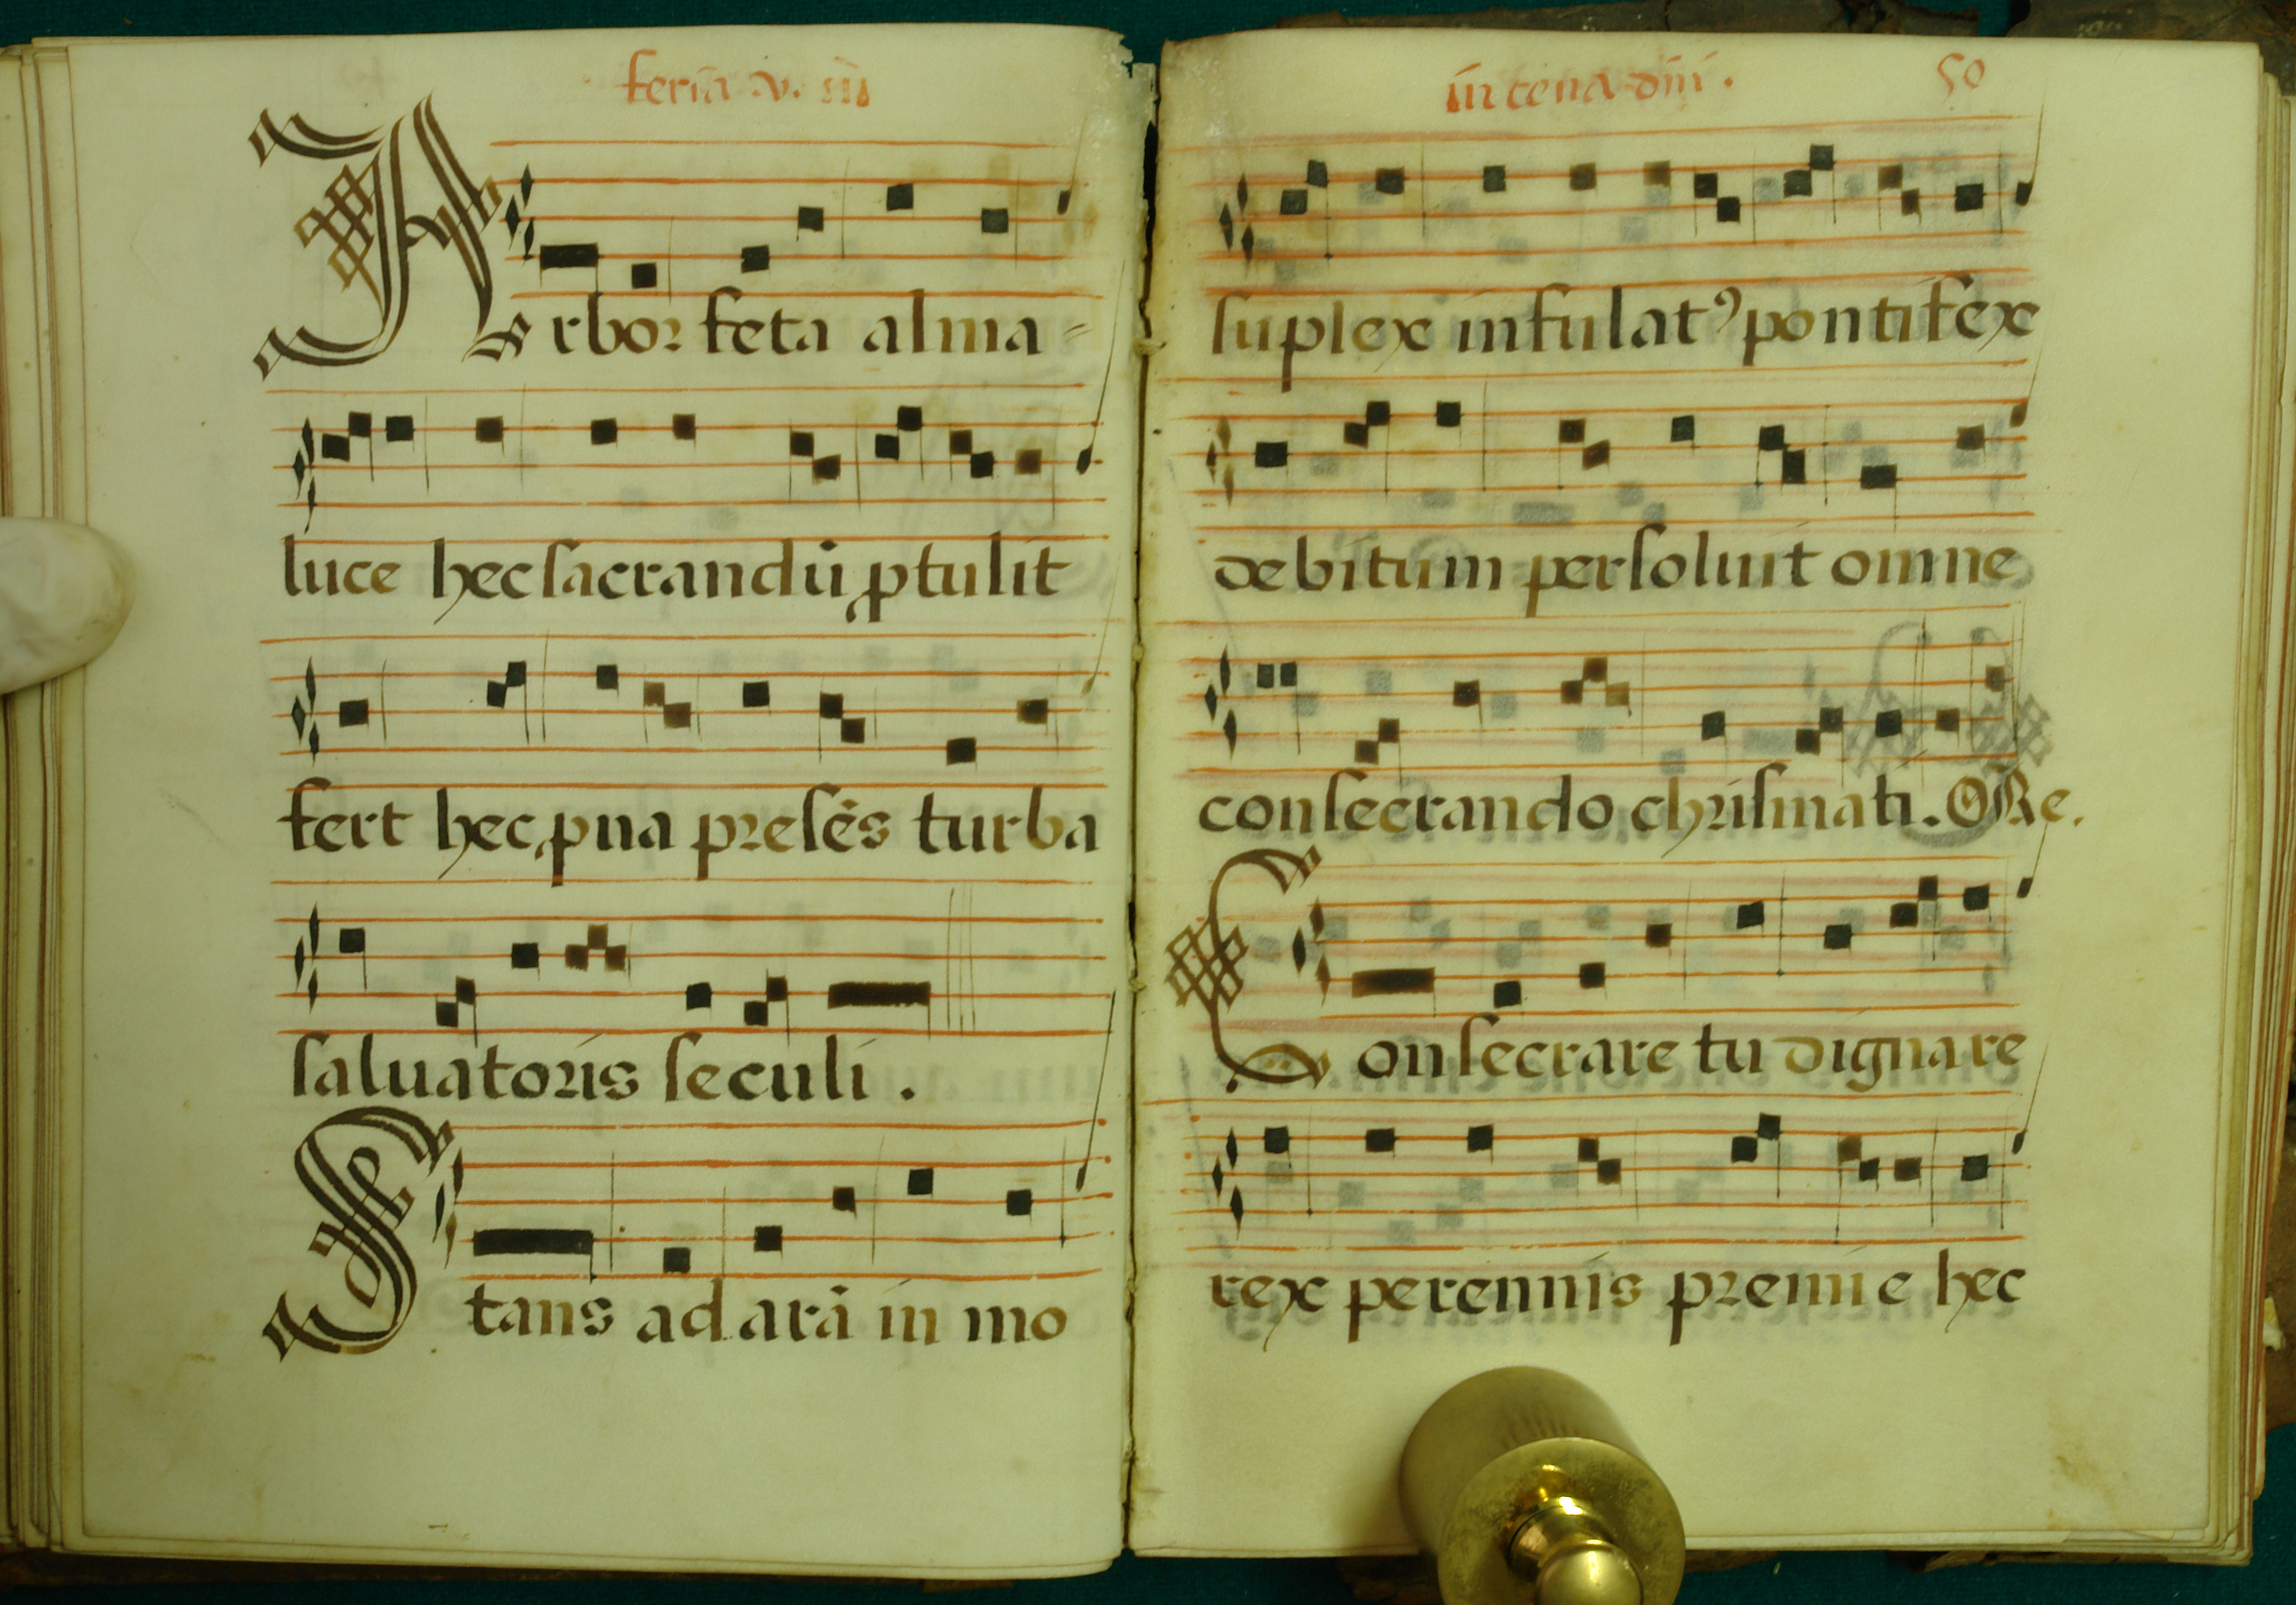 feria .v. in
Arbor feta alma-
luce hec sacrandū ꝓtulit
fert hec p̱na presēs turba
saluatoris seculi .
Stans ad arā in mo
in cena dn̄i . 50
suplex infulatꝰ pontifex
debitum persoluit omne
consecrando chrismati. O Re.
Consecrare tu dignare
rex perennis premie hec